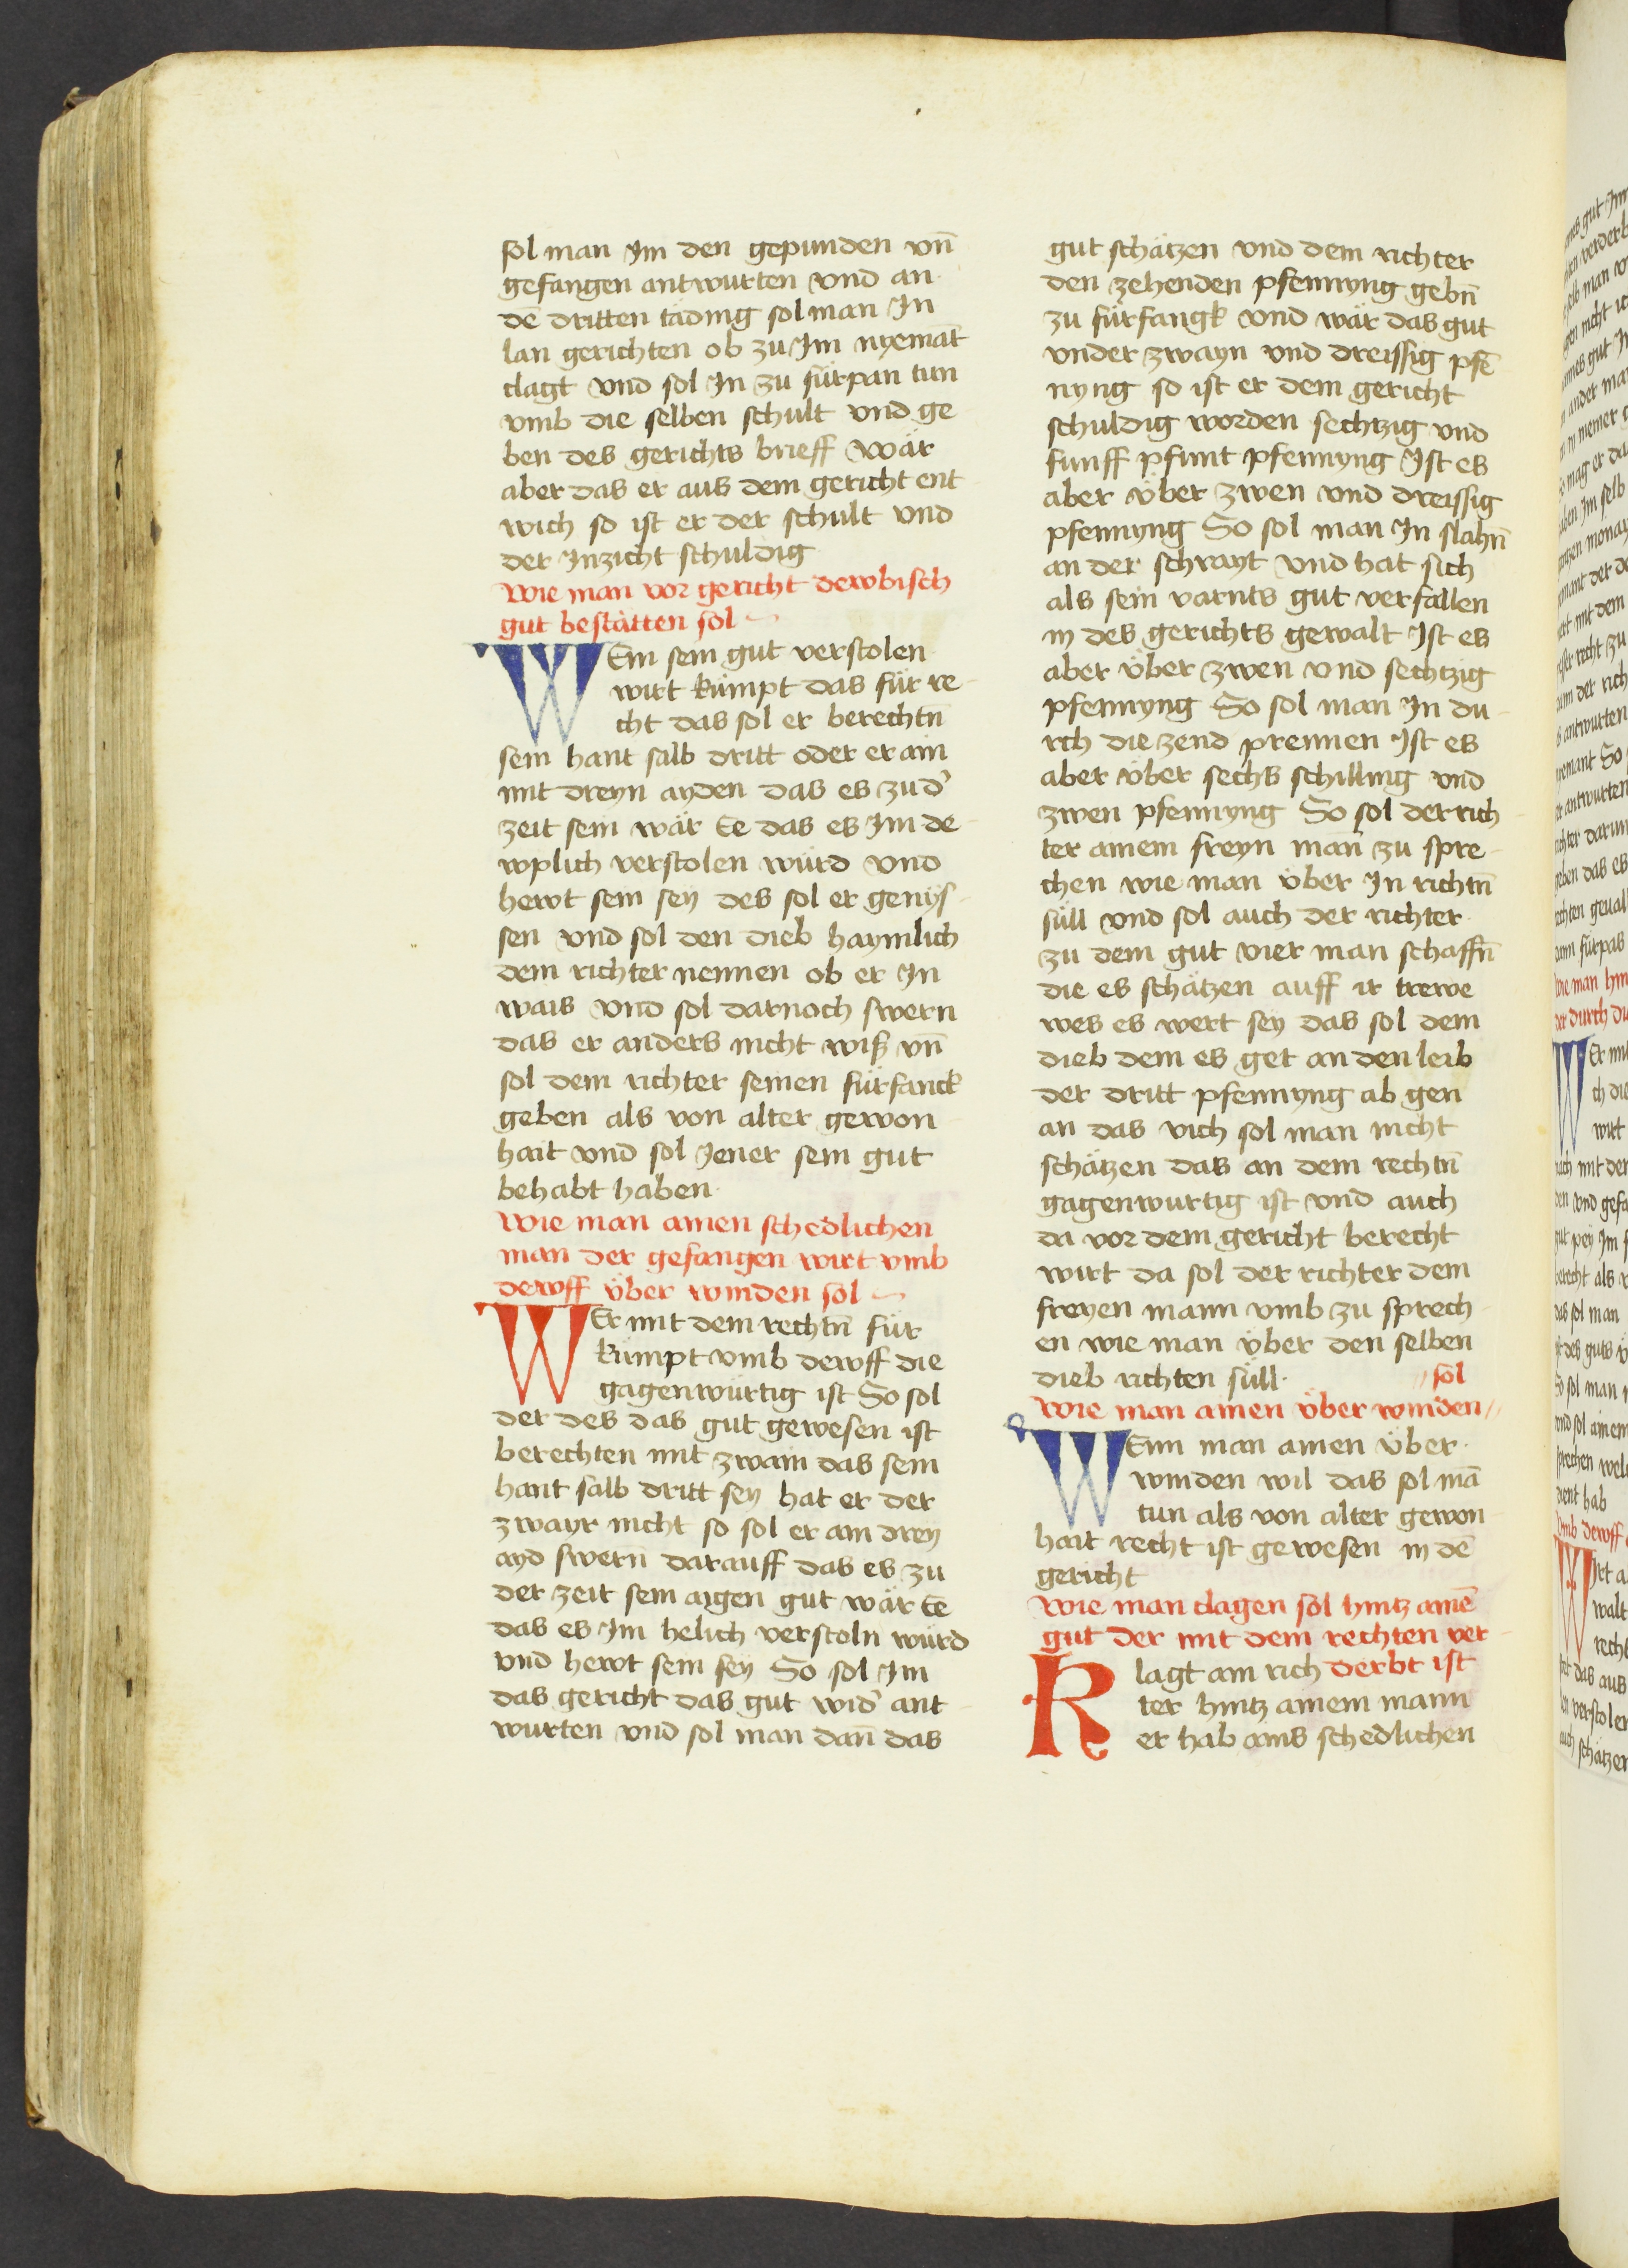 sol man Im den gepunden vn̄
gefangen antwurten vnd an
dē dritten täding sol man In
lan gerichten ob zu Im nyemāt
clagt vnd sol In zu fürpan tun
vmb die selben schult vnd ge
ben des gerichts brieff Wär
aber das er aus dem gericht ent
wich so ist er der schult vnd
der Inzicht schuldig
Wie man vor gericht dewbisch
gut bestätten sol
WEm sein gut verstolen
wirt kümpt das für re
cht das sol er berechtn̄
sein hant salb dritt oder er ain
mit dreyn ayden das es zu d'
zeit sein wär Ee das es Im de
wplich verstolen würd vnd
hewt sein sey des sol er genys
sen vnd sol den dieb haymlich
dem richter nennen ob er In
wais vnd sol darnoch swern
das er anders nicht wiss vn̄
sol dem richter seinen fürfanck
geben als von alter gewon
hait vnd sol Jener sein gut
behabt haben
Wie man ainen schedlichen
man der gefangen wirt vmb
dewff über winden sol
WEr mit dem rechtn̄ für
kümpt vmb dewff die
gagenwürtig ist So sol
der des das gut gewesen ist
berechten mit zwain das sein
hant salb dritt sey hat er der
zwayr nicht so sol er ain drey
ayd swern darauff das es zu
der zeit sein aygen gut wär Ee
das es Im helich verstoln würd
vnd hewt sein sey So sol Im
das gericht das gut wid' ant
wurten vnd sol man dan̄ das
gut schätzen vnd dem richter
den zehenden pfennyng gebn̄
zu fürfangk vnd wär das gut
vnder zwayn vnd dreissig pfē
nyng so ist er dem gericht
schuldig worden sechtzig vnd
funff pfunt pfennyng Ist es
aber über zwen vnd dreissig
pfennyng So sol man In slahn̄
an der schrayt vnd hat sich
als sein varnts gut verfallen
in des gerichts gewalt Ist es
aber über zwen vnd sechtzig
pfennyng So sol man In du
rch die zend prennen Ist es
aber über sechs schilling vnd
zwen pfennyng So sol der rich
ter ainem freyn man̄ zu spre
chen wie man über In richtn̄
süll vnd sol auch der richter
zu dem gut vier man schaffn̄
die es schätzen auff ir trewe
wes es wert sey das sol dem
dieb dem es get an den leib
der dritt pfennyng ab gen
an das vich sol man nicht
schätzen das an dem rechtn̄
gagenwurtig ist vnd auch
da vor dem gericht berecht
wirt da sol der richter dem
freyen mann vmb zu sprech
en wie man über den selben
dieb richten süll
// sol
Wie man ainen über winden //
WEnn man ainen über
winden wil das sol mā
tun als von alter gewon
hait recht ist gewesen in dē
gericht
Wie man clagen sol hintz ainē
gut der mit dem rechten ver
Klagt ain rich derbt ist
ter hintz ainem mann
er hab ains schedlichen